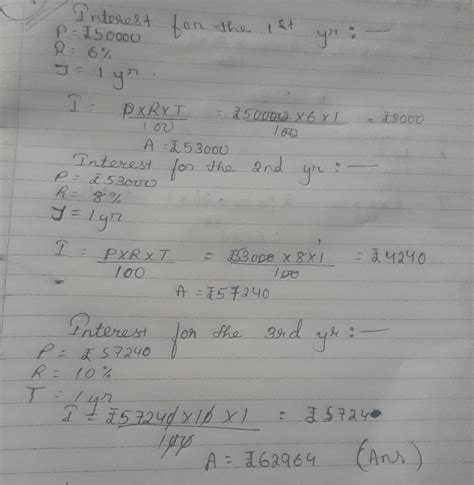 Interest for the 1st yr :—
P = ₹50000
R = 6%
T = 1 yr.
I = P×R×T/100 = ₹50000×6×1/100 = ₹3000
A = ₹53000
Interest for the 2nd yr :—
P = ₹53000
R = 8%
T = 1yr
I = P×R×T/100 = ₹53000×8×1/100 = ₹4240
A = ₹57240
Interest for the 3rd yr :—
P = ₹57240
R = 10%
T = 1yr
I = ₹57240×10×1/100 = ₹5724
A = ₹62964 (Ans)